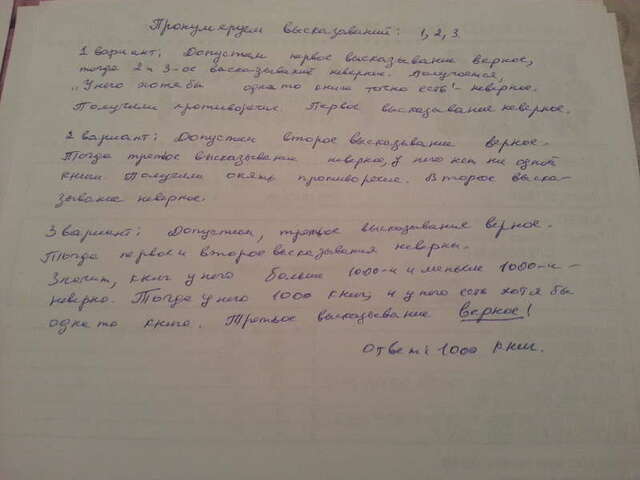 Пронумеруем высказывания: 1, 2, 3
1 вариант: Допустим первое высказывание верное,
тогда 2 и 3-ое высказывания неверное. Получается,
„У него хотя бы одна то книга точно есть" - неверное.
Получили противоречие. Первое высказывание неверное.
2 вариант: Допустим второе высказывание верное.
Тогда третье высказывание неверно, у него нет ни одной
книги. Получили опять противоречие. Второе выска-
зывание неверное.
3 вариант: Допустим, третье высказывание верное.
Тогда первое и второе высказывания неверны.
Значит, книг у него больше 1000-и и меньше 1000-и -
неверно. Тогда у него 1000 книг, и у него есть хотя бы
одна то книга. Третье высказывание верное!
Ответ: 1000 книг.